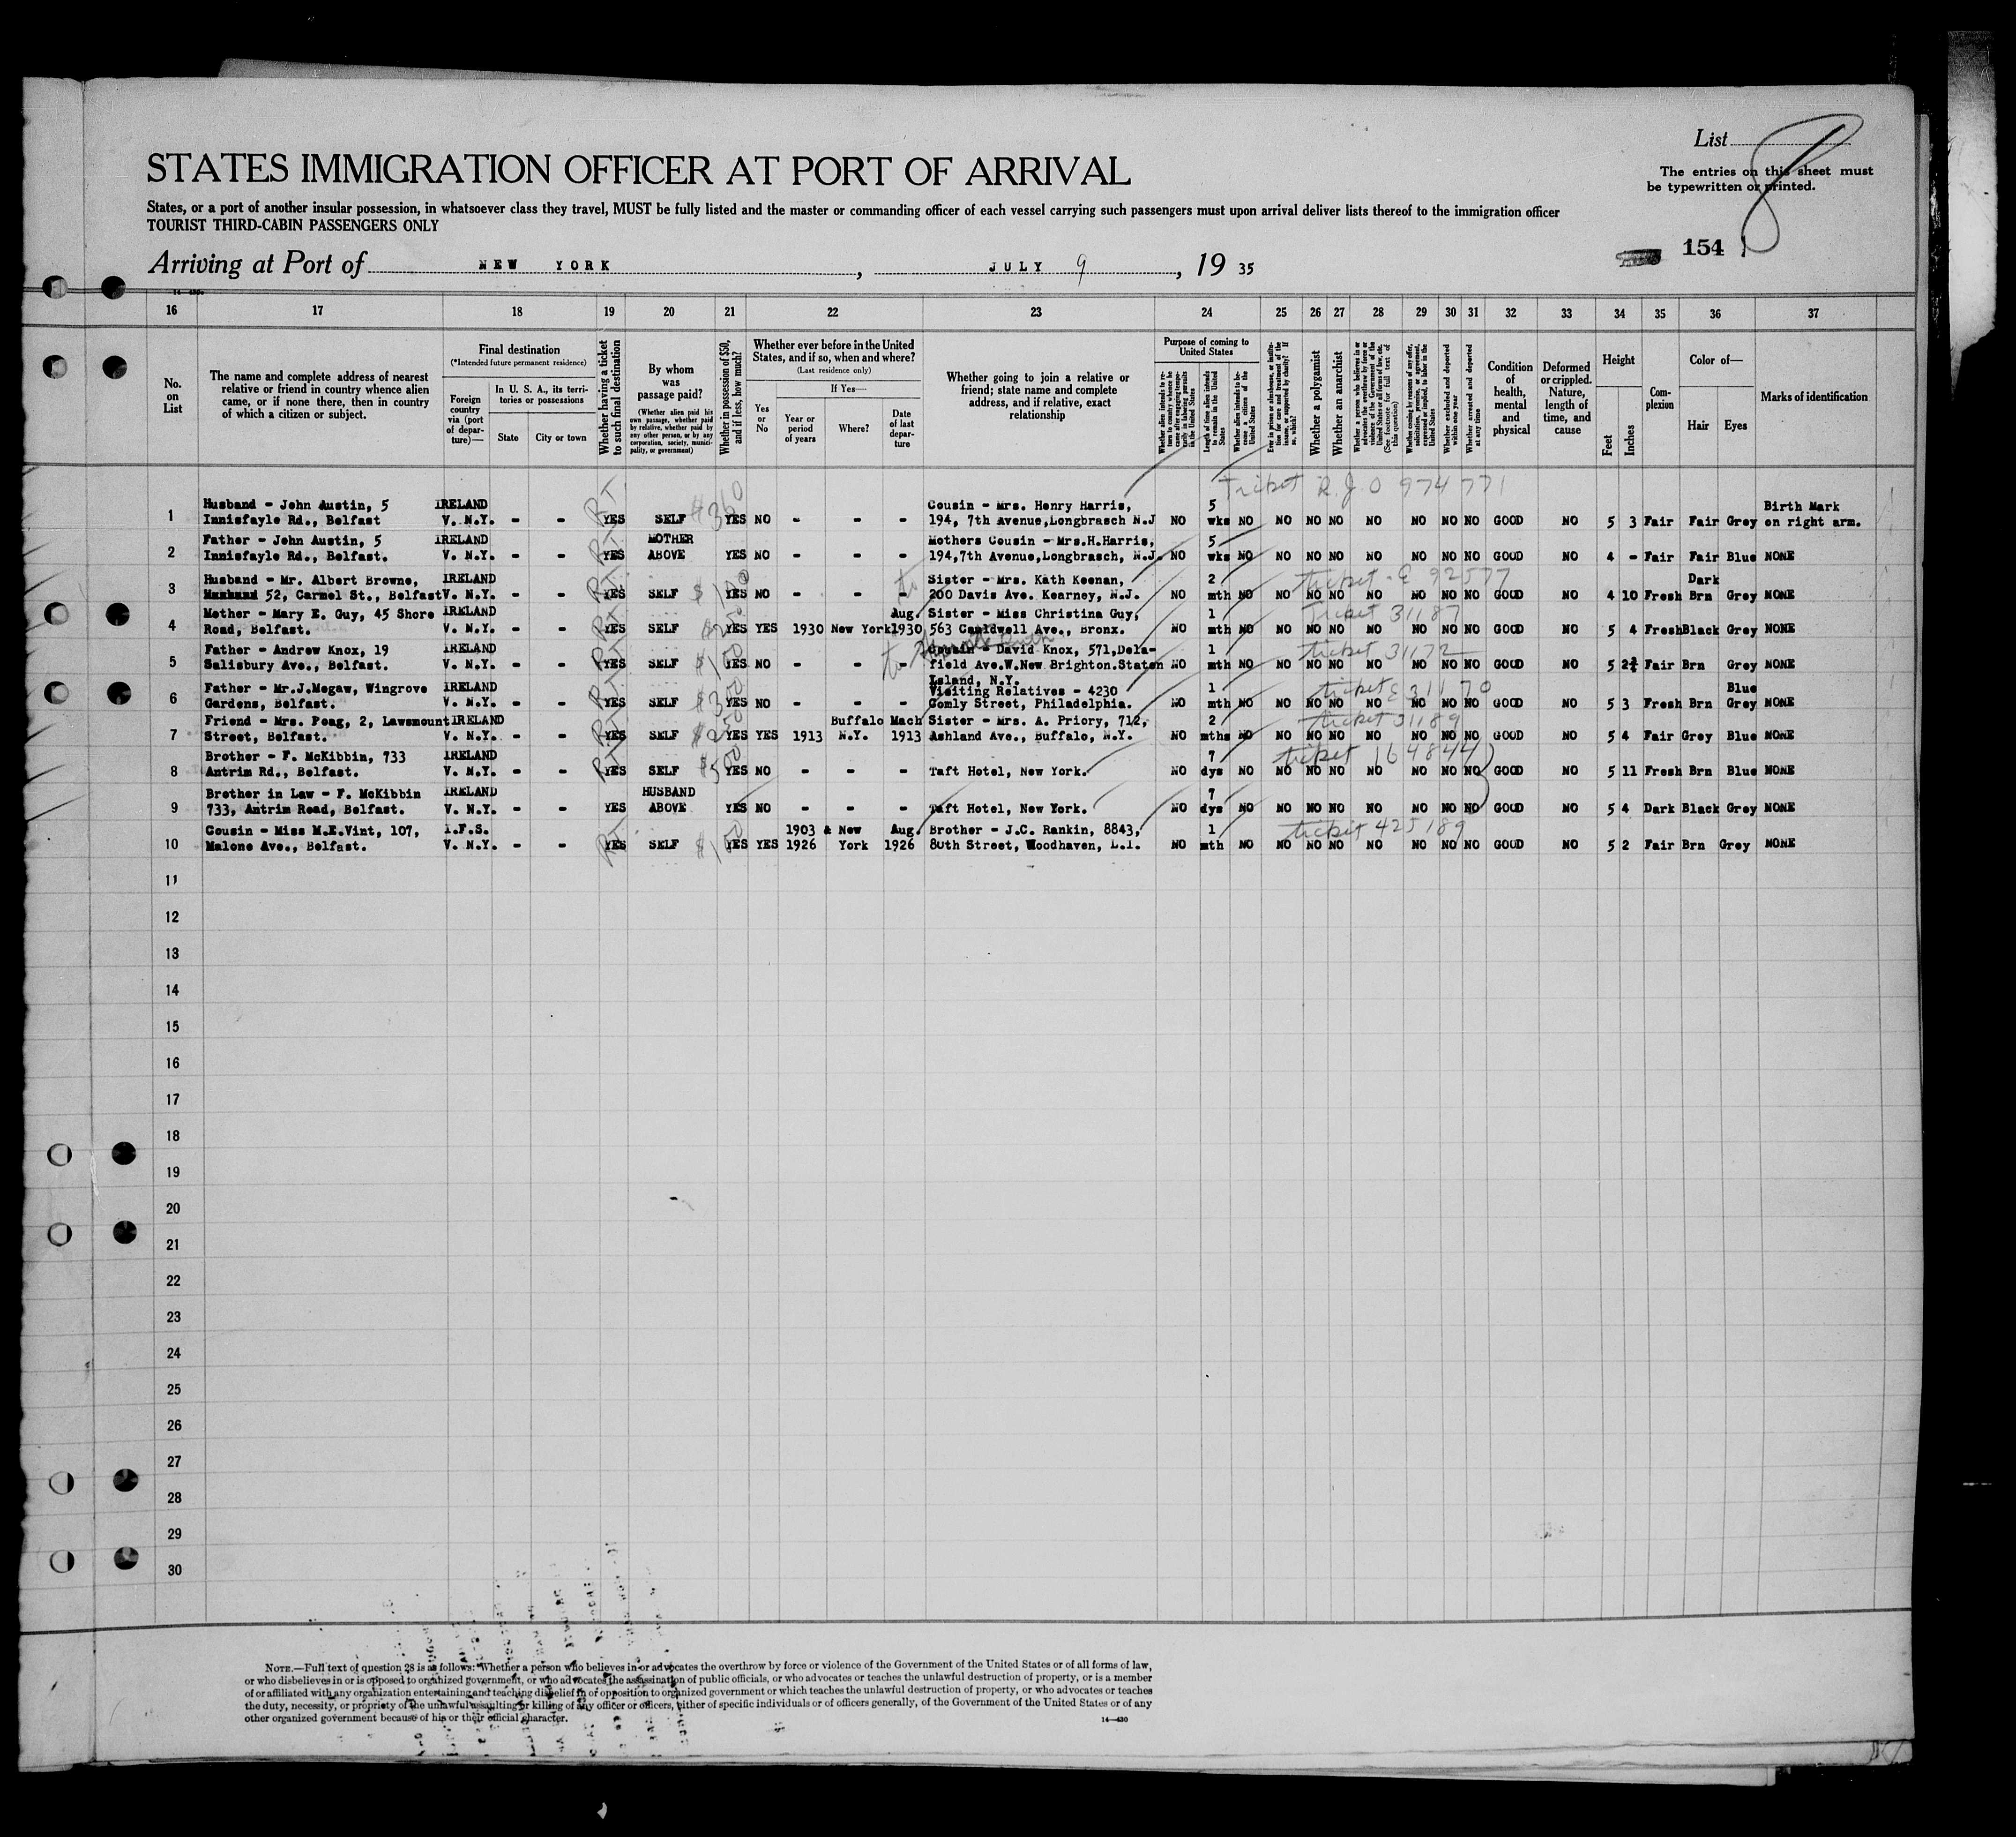 List 8
The entries on this sheet must
be typewritten or printed.
STATES IMMIGRATION OFFICER AT PORT OF ARRIVAL
States, or a port of another insular possession, in whatsoever class they travel, MUST be fully listed and the master or commanding officer of each vessel carrying such passengers must upon arrival deliver lists thereof to the immigration officer
TOURIST THIRD-CABIN PASSENGERS ONLY
154
Arriving at Port of NEW YORK, JULY 9, 19 35
16 17 18 19 20 21 22 23 24 25 26 27 28 29 30 31 32 33 34 35 36 37
No. on List
The name and complete address of nearest
relative or friend in country whence alien
came, or if none there, then in country
of which a citizen or subject.
Final destination
(*Intended future permanent residence)
Foreign country via (port of departure)—
In U. S. A., its territories or possessions
State City or town
Whether having a ticket to such final destination
By whom was passage paid?
(Whether alien paid his own passage, whether paid by relative, whether paid by any other person, or by any corporation, society, municipality, or government)
Whether in possession of $50, and if less, how much?
Whether ever before in the United
States, and if so, when and where?
(Last residence only)
Yes or No
If Yes—
Year or period of years Where? Date of last departure
Whether going to join a relative or
friend; state name and complete
address, and if relative, exact
relationship
Purpose of coming to United States
Length of time alien intends to remain in the United States
Whether alien intends to become a citizen of the United States
Whether a polygamist
Whether an anarchist
Whether excluded and deported within one year
Whether arrested and deported at any time
Condition of health, mental and physical
Deformed or crippled. Nature, length of time, and cause
Height
Feet Inches
Complexion
Color of—
Hair Eyes
Marks of identification
Ticket R.J.O 974771
Husband - John Austin, 5 IRELAND Cousin - Mrs. Henry Harris, 5 Birth Mark
1 Innisfayle Rd., Belfast V. N.Y. - - RT YES SELF $360 YES NO - - - 194, 7th Avenue,Longbrasch N.J NO wks NO NO NO NO NO NO NO NO GOOD NO 5 3 Fair Fair Grey on right arm.
Father - John Austin, 5 IRELAND MOTHER Mothers Cousin - Mrs.H.Harris, 5
2 Innisfayle Rd., Belfast. V. N.Y. - - RT YES ABOVE YES NO - - - 194,7th Avenue,Longbrasch, N.J. NO wks NO NO NO NO NO NO NO NO GOOD NO 4 - Fair Fair Blue NONE
Husband - Mr. Albert Browne, IRELAND Sister - Mrs. Kath Keenan, 2 ticket - E 92577 Dark
3 52, Carmel St., Belfast V. N.Y. - - RT YES SELF YES NO - - - 200 Davis Ave. Kearney, N.J. NO mth NO NO NO NO NO NO NO NO GOOD NO 4 10 Fresh Brn Grey NONE
Mother - Mary E. Guy, 45 Shore IRELAND Aug. Sister - Miss Christina Guy, 1 Ticket 31187
4 Road, Belfast. V. N.Y. - - RT YES SELF YES YES 1930 New York 1930 563 Cauldwell Ave., Bronx. NO mth NO NO NO NO NO NO NO NO GOOD NO 5 4 Fresh Black Grey NONE
Father - Andrew Knox, 19 IRELAND David Knox, 571,Dela- 1 ticket 31172
5 Salisbury Ave., Belfast. V. N.Y. - - RT YES SELF $100 YES NO - - - field Ave.W.New Brighton.Staten NO mth NO NO NO NO NO NO NO NO GOOD NO 5 2½ Fair Brn Grey NONE
Island, N.Y.
Father - Mr.J.Megaw, Wingrove IRELAND Visiting Relatives - 4230 1 ticket E 31170 Blue
6 Gardens, Belfast. V. N.Y. - - RT YES SELF $300 YES NO - - - Comly Street, Philadelphia. NO mth NO NO NO NO NO NO NO NO GOOD NO 5 3 Fresh Brn Grey NONE
Friend - Mrs. Peag, 2, Lawsmount IRELAND Buffalo Mach Sister - Mrs. A. Priory, 712, 2 ticket 31189
7 Street, Belfast. V. N.Y. - - RT YES SELF YES YES 1913 N.Y. 1913 Ashland Ave., Buffalo, N.Y. NO mths NO NO NO NO NO NO NO NO GOOD NO 5 4 Fair Grey Blue NONE
Brother - F. McKibbin, 733 IRELAND 7 ticket 164844
8 Antrim Rd., Belfast. V. N.Y. - - RT YES SELF $500 YES NO - - - Taft Hotel, New York. NO dys NO NO NO NO NO NO NO NO GOOD NO 5 11 Fresh Brn Blue NONE
Brother in Law - F. McKibbin IRELAND HUSBAND 7
9 733, Antrim Road, Belfast. V. N.Y. - - YES ABOVE YES NO - - - Taft Hotel, New York. NO dys NO NO NO NO NO NO NO NO GOOD NO 5 4 Dark Black Grey NONE
Cousin - Miss M.E.Vint, 107, I.F.S. 1903 & New Aug. Brother - J.C. Rankin, 8843, 1 ticket 425189
10 Malone Ave., Belfast. V. N.Y. - - RT YES SELF $100 YES YES 1926 York 1926 80th Street, Woodhaven, L.I. NO mth NO NO NO NO NO NO NO NO GOOD NO 5 2 Fair Brn Grey NONE
11
12
13
14
15
16
17
18
19
20
21
22
23
24
25
26
27
28
29
30
NOTE.—Full text of question 28 is as follows: Whether a person who believes in or advocates the overthrow by force or violence of the Government of the United States or of all forms of law,
or who disbelieves in or is opposed to organized government, or who advocates the assassination of public officials, or who advocates or teaches the unlawful destruction of property, or is a member
of or affiliated with any organization entertaining and teaching disbelief in or opposition to organized government or which teaches the unlawful destruction of property, or who advocates or teaches
the duty, necessity, or propriety of the unlawful assaulting or killing of any officer or officers, either of specific individuals or of officers generally, of the Government of the United States or of any
other organized government because of his or their official character.
14—430